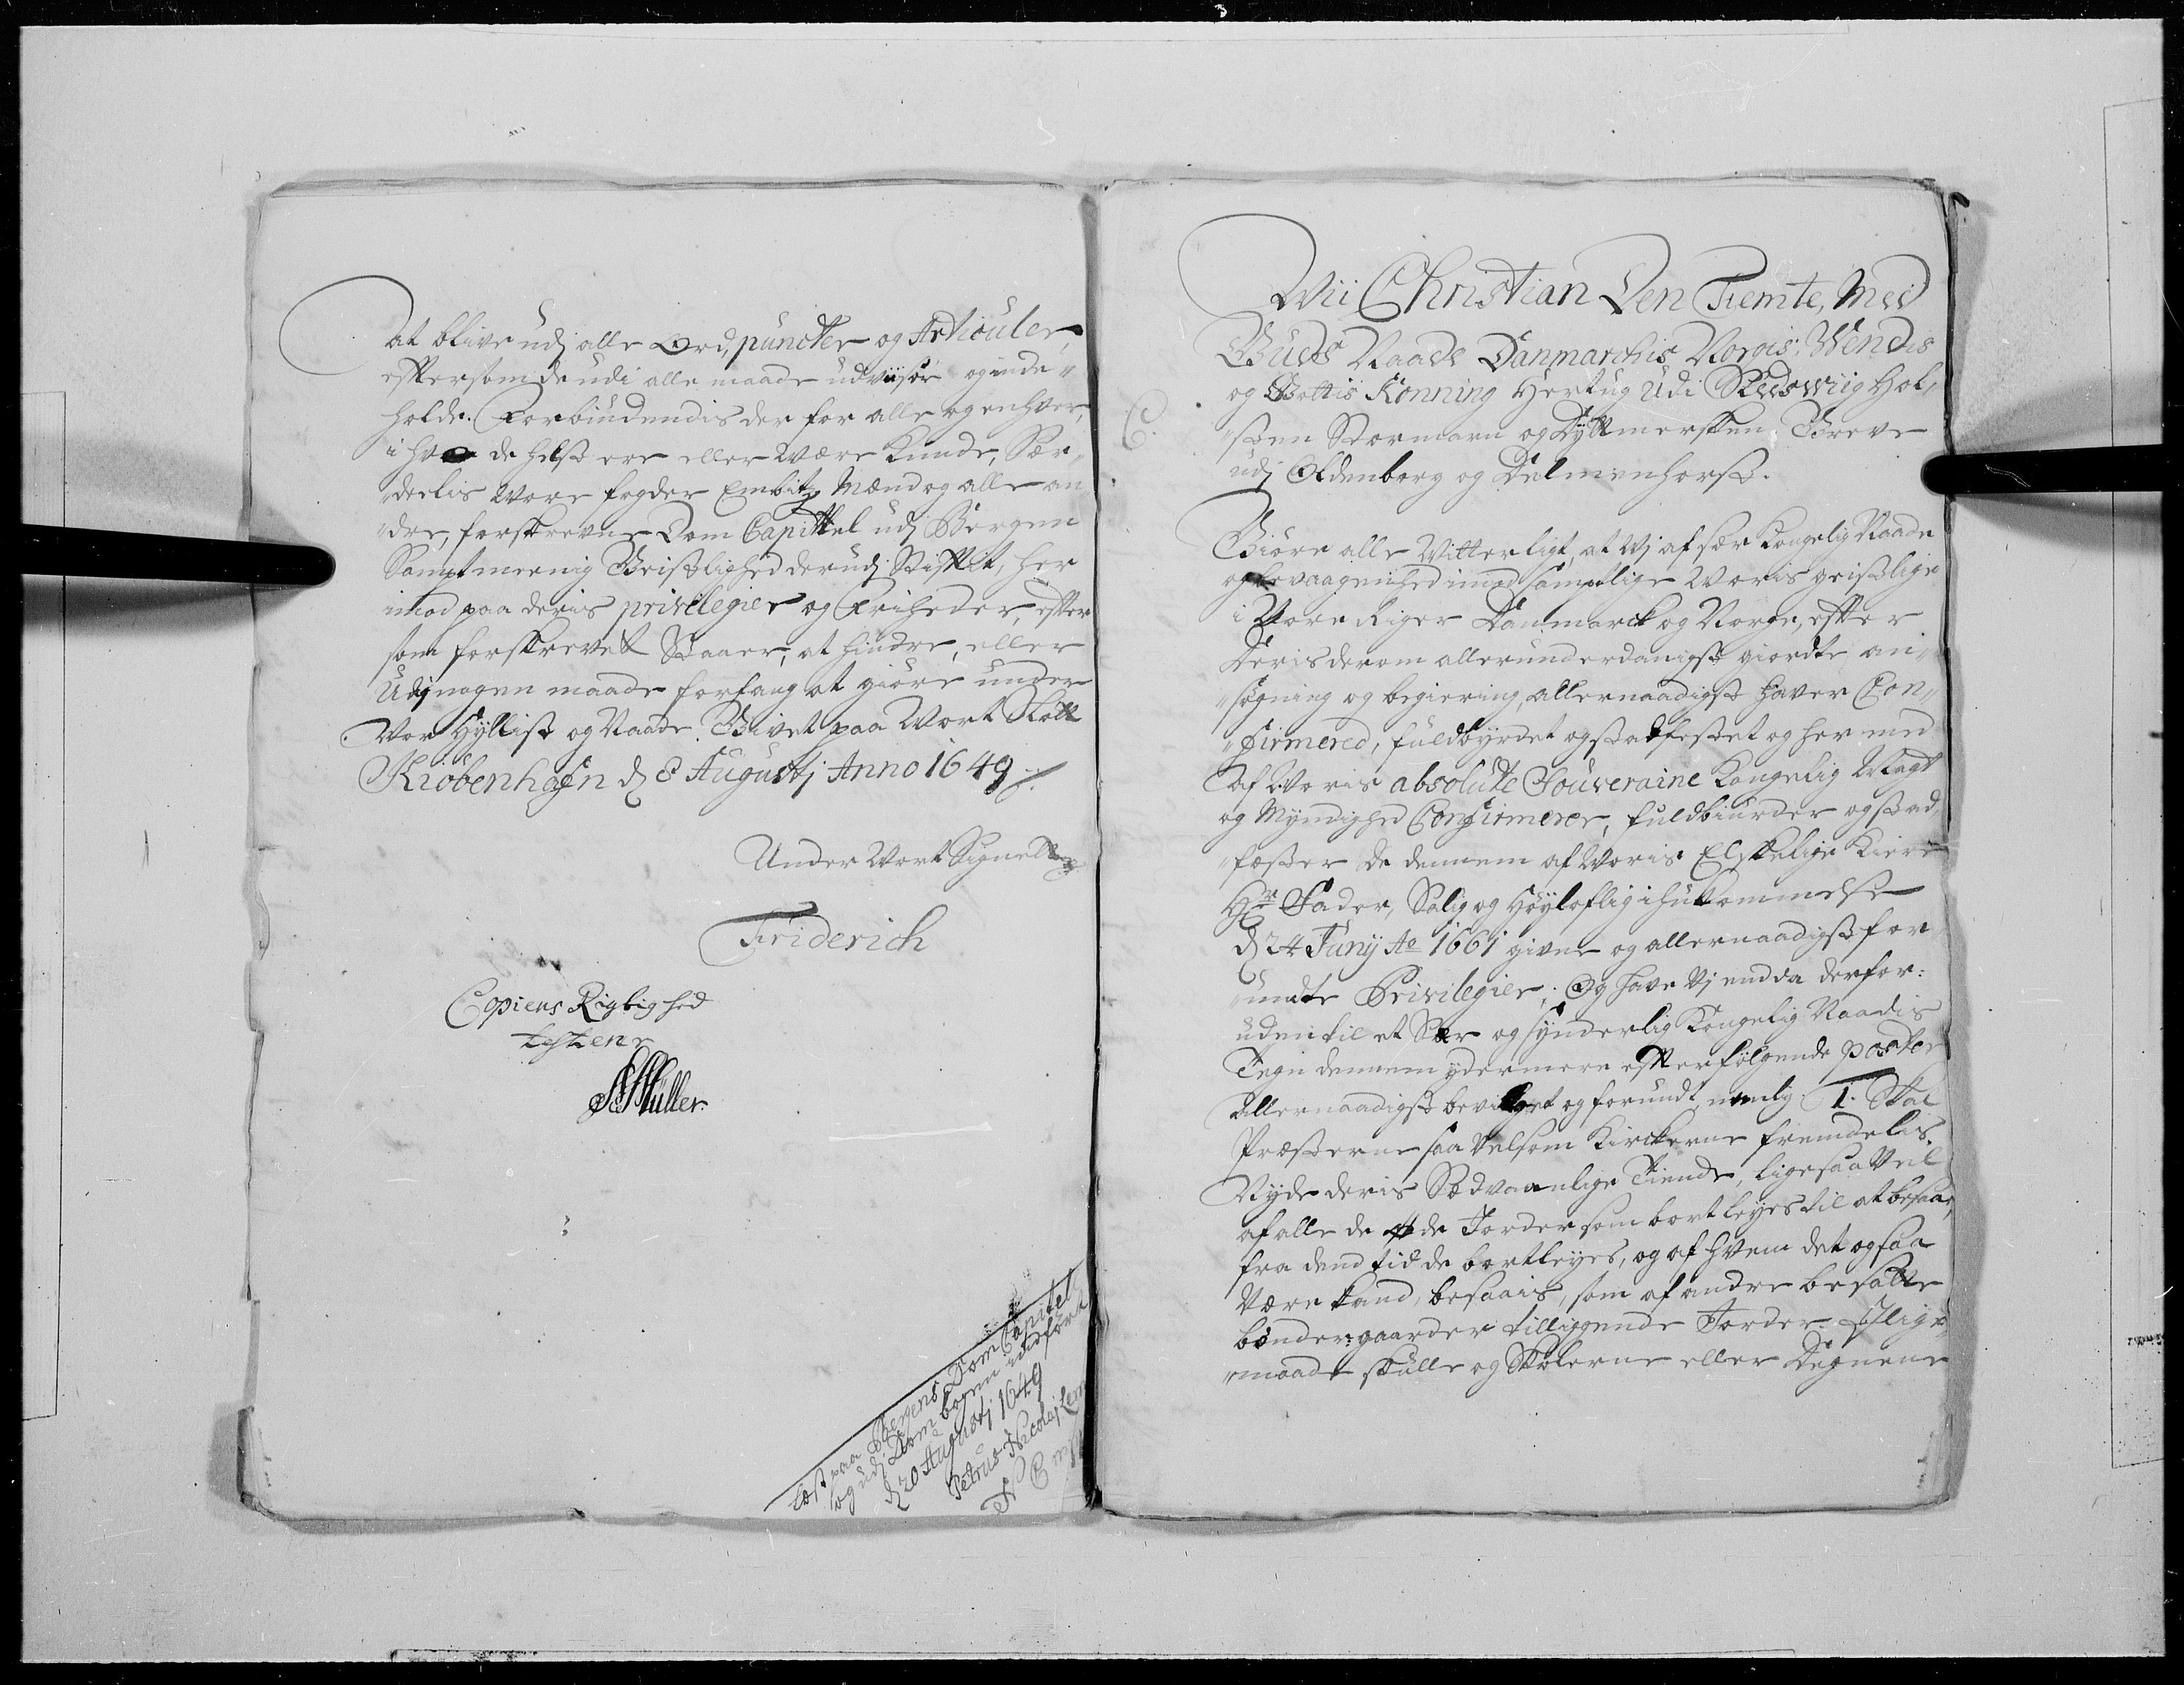 At blive udj alle Ord, puncter og Articuler,
efftersom de udi alle maade udviiser og inde„
holde. Forbiudendis der for alle og enhver,
i hvo de helst ere eller være Kunde, Sær„
„deelis Vore fogder Embitz Mænd og alle an
„dre, forskrevne Dom Capittel udj Bergen
Sampt meenig Geistlighed derudj Stifftet, her
imod paa deris privilegier og Friheder, efter
som forskrevet Staaer, at hindre, eller
Udj nogen maade forfang at giöre under
Vor Hyllist og Naade. Givet paa Vort Slott
Kiöbenhafn d 8 Augustj Anno 1649
Under Vort Signett
Friderich
Copiens Rigtighed
testerer
Müller
Læst paa Bergens Dom Capitel
og udj Dom bogen indfört
d 20 Augustj 1649
Petrus Nicolaj
Wii Christian Den Femte, Med
Guds Naade Danmarckis Norgis, Wendis
og Gottis Konning Hertug Udi Slesswiig Hol„
C.
„sten Stormarn og Dyttmersken, Greve
udj Oldenborg og Delmenhorst.
Giöre alle Vitterligt, at Vj af sær Kongelig Naade
og bevaagenhed imod samptlige Voris geistlige
i Vore Riger Danmarck og Norge, efter
Deris derom allerunderdanigst giordte an„
„sögning og begiering, allernaadigst haver Con„
„firmered, fuldbyrdet og stadfestet og her med
Af Voris absolute Souveraine Kongelig Magt
og Myndighed Confirmerer, fuldbiurder og stad„
„fæster de dennem af Voris Elskelige Kiere
Hr Fader, Salig og Höylofflig ihukommelse
d 24 Junij Ao 1661 givne og allernaadigst for
„undte Privilegier, Og have Vj endda derfor:
uden til et Sær og synderlig Kongelig Naadis
Tegn dennem ydermere efterfölgende poster
Allernaadigst bevilget og forundt, nemlig. 1. Skal
Præsterne saa Velsom Kirckerne fremdelis
Nyde deris Sædvaanlige Tiende, ligesaa Vel
af alle de öde Jorder som bortleyes til at besaae,
fra dend tid de bortleyes, og af hvem det ogsaa
Være kand, besaais, som af andre besatte
bönder:gaarder tilliggende Jorder. Jlige„
„maade skulle og Skolerne eller Degnene